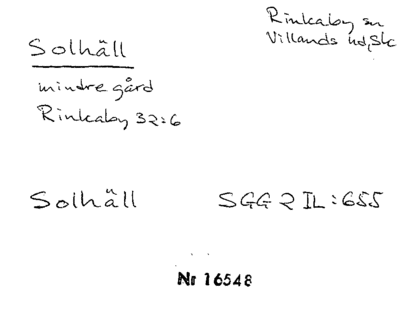 Rinkaby sn
Villands hd, Sk
Solhäll
mindre gård
Rinkaby 32:6
Solhäll SGG 2 IL:655
Nr 16548